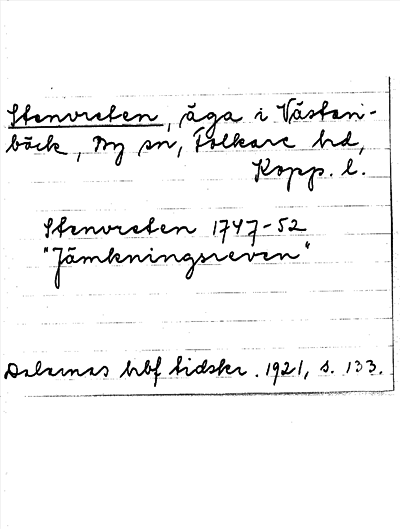 Stenvreten, äga i Västan-
bäck, By sn, Folkare hd,
Kopp. l.
Stenvreten 1747-52
"Jämkningsreven"
Dalarnas hbf tidskr. 1921, s. 133.